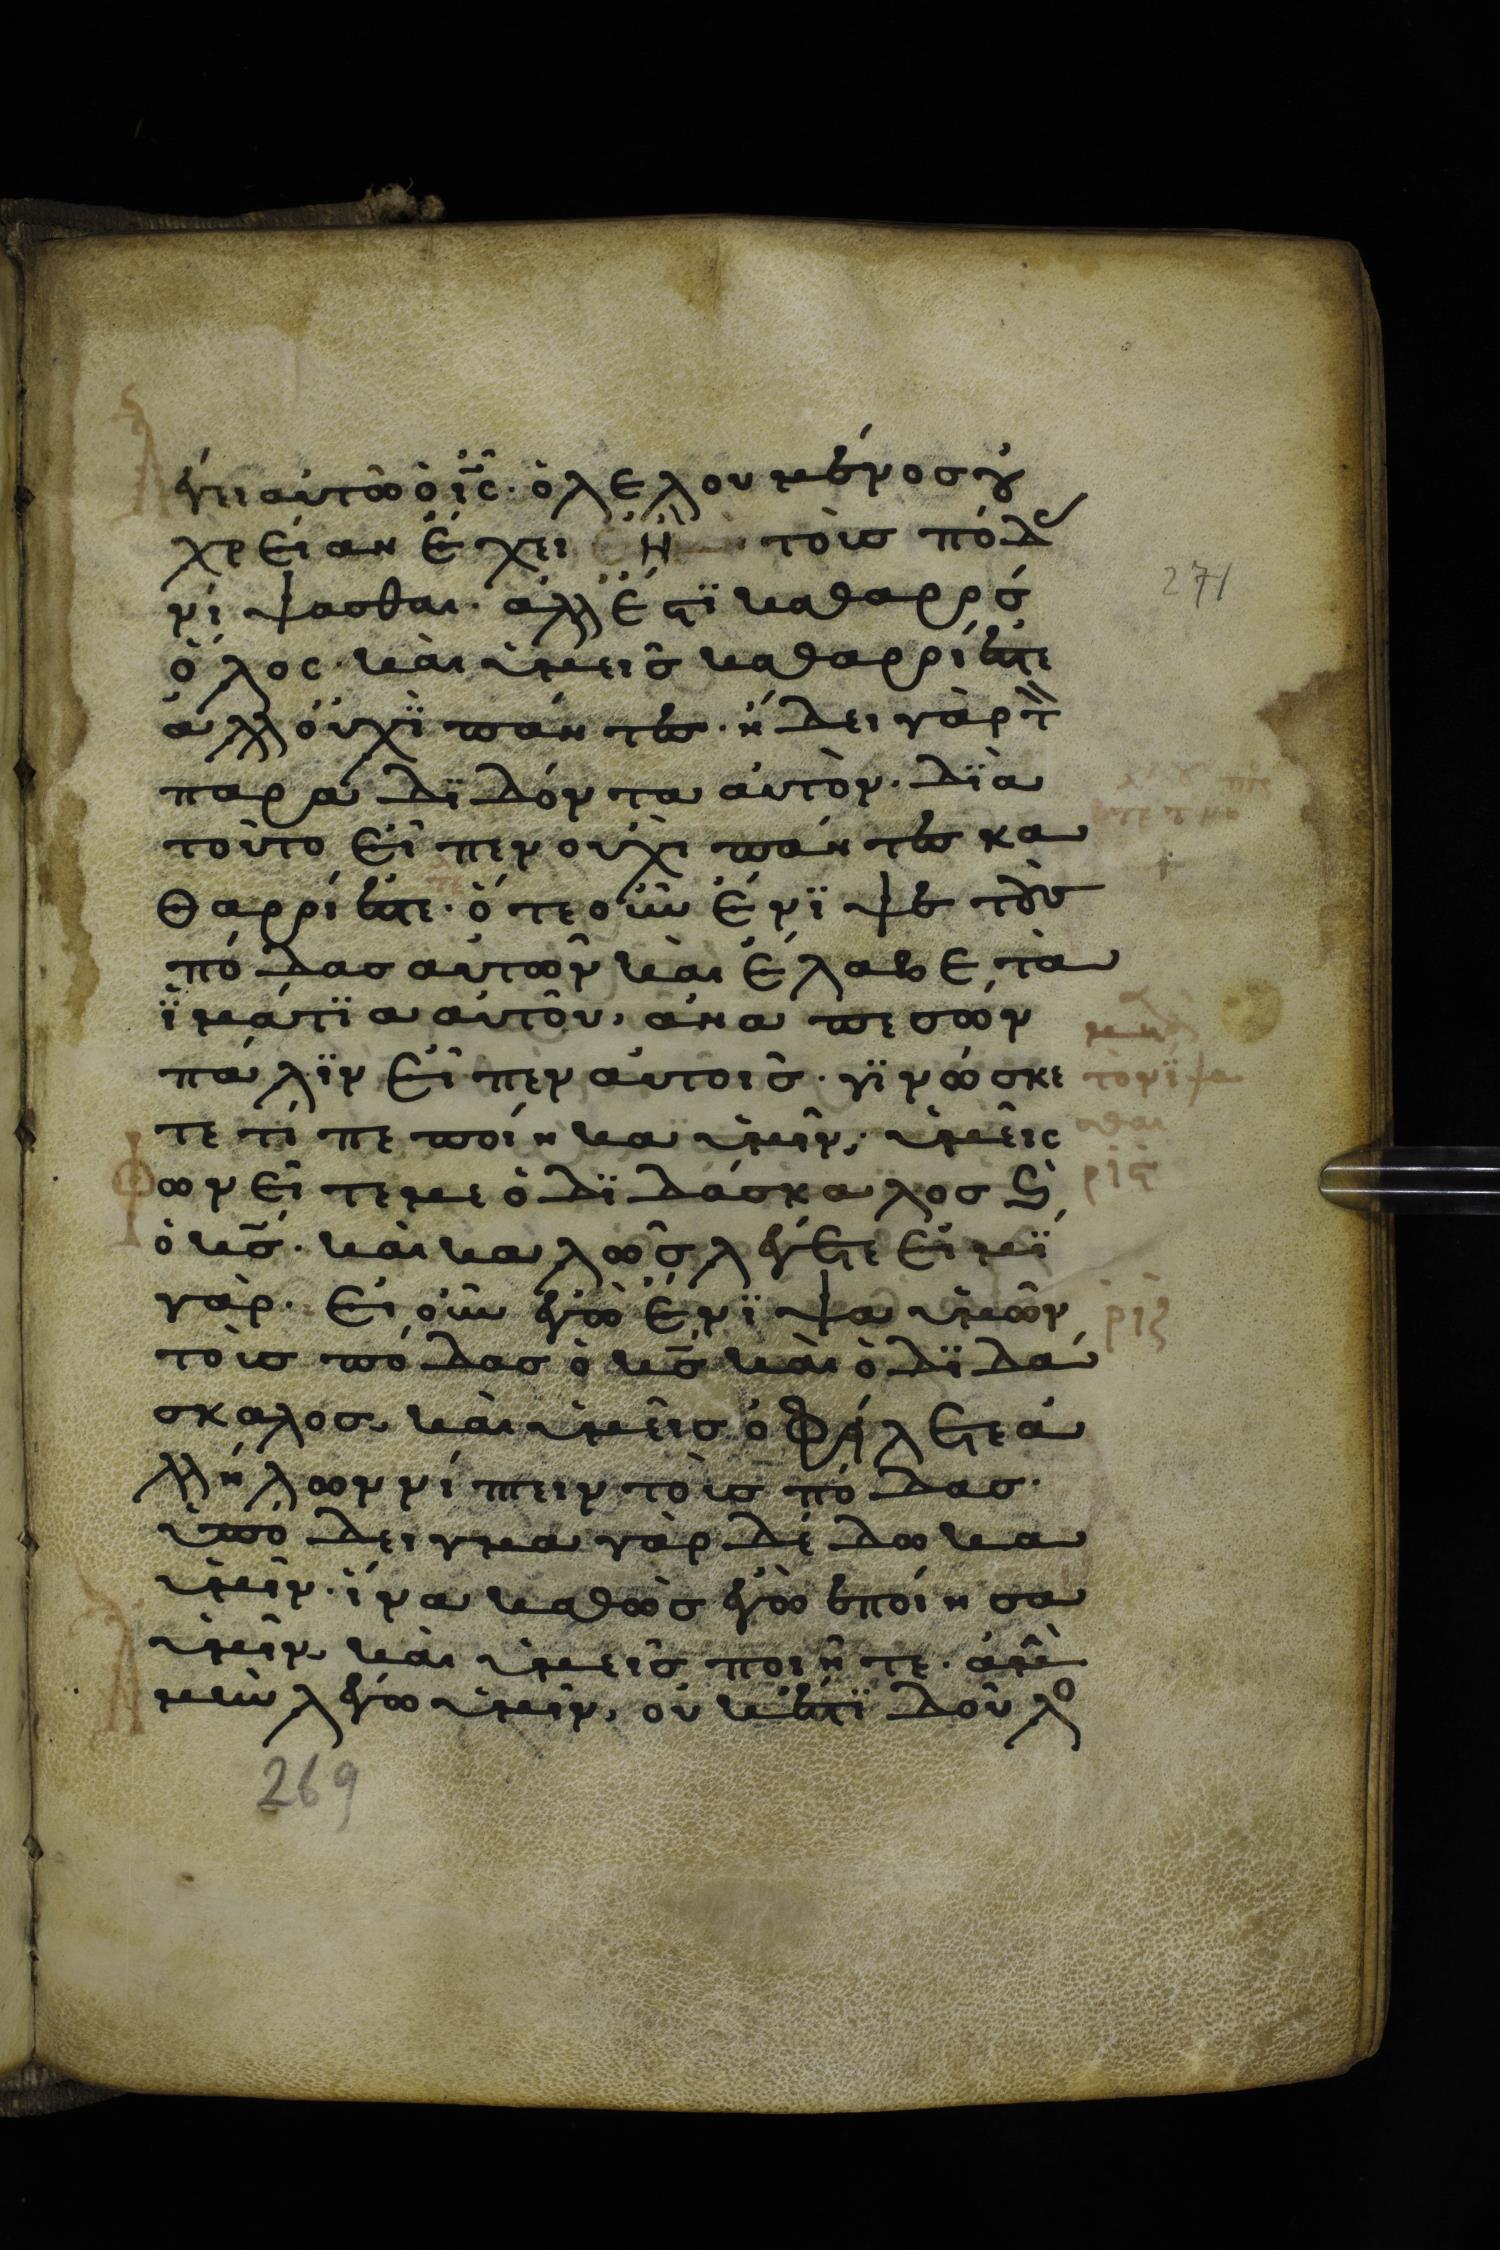 λέγει αὐτῶ ὁ ι̅ς̅· ὁ λελουμένος οὐ
χρείαν ἔχει ἢ τοὺς πόδ
νίψασθαι· ἀλλ' ἔστϊ καθαρὸς
ὅλος· καὶ ὑμεῖς καθαροί ἐστε
ἀλλ' οὐχῒ πάντες· ἤδει γὰρ τ
παραδϊδόντα αὐτὸν· δϊὰ
τοῦτο εἶπεν οὐχὶ πάντες κα
θαροί ἐστε· ὅτε οὖν ἔνϊψε τοὺς
πόδας αὐτῶν καὶ ἔλαβε τὰ
ϊμάτϊα αὐτοῦ, ἀναπεσὼν
πάλϊν εἶπεν αὐτοῖς· γϊνώσκε
τε τί πεποίηκα ὑμῖν, ὑμεῖς
φωνεῖτέ με ὁ δϊδάσκαλος ϗ
ὁ κ̅ς̅· καὶ καλῶς λέγετε εἰμϊ
γὰρ· εἰ οὖν ἐγὼ ἔνϊψα ὑμῶν
τοὺς πόδας ὁ κ̅ς̅ καὶ ὁ δϊδά
σκαλος, καὶ ὑμεῖς ὀφείλετε ἀ
λλήλων νίπτειν τοὺς πόδας·
ὑπόδειγμα γὰρ δέδωκα
ὑμῖν· ἵνα καθὼς ἐγὼ ἐποίησα
ὑμῖν, καὶ ὑμεῖς ποιῆτε· ἀμὴ
μὴν λέγω ὑμῖν, οὐκ ἔστϊ δοῦλο
271
μετὰ
τὸ νίψα
σθαι
ρις
ριζ
269